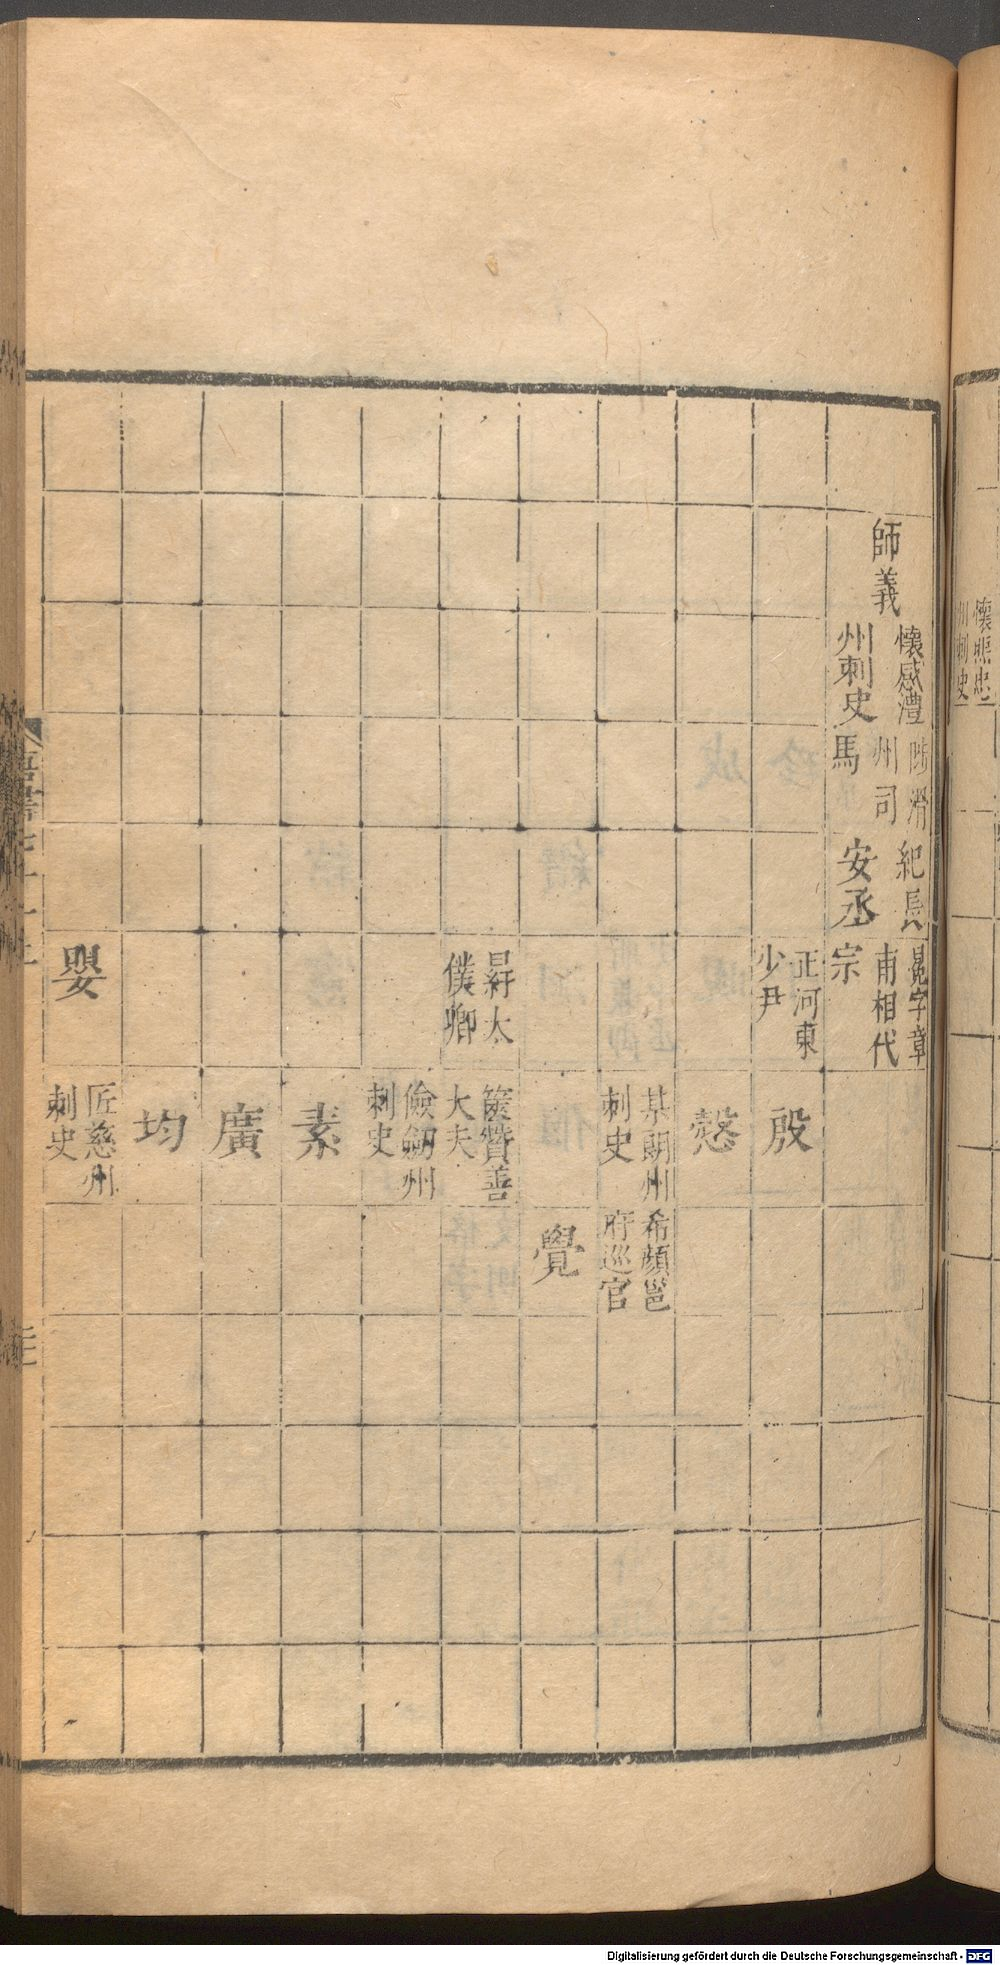 師義
懷感澧
州刺史
陟滑
州司
馬
紀長
安丞
冕字章
甫相代
宗
正河東
少尹
殷
慤
某朗州
刺史
希顏邕
府巡官
覺
昇太
僕卿
篋贊善
大夫
儉劒州
刺史
素
廣
均
嬰
匠慈州
刺史
唐書七十三上
懷
州刺史
Digitalisierung gefördert durch die Deutsche Forschungsgemeinschaft - DFG